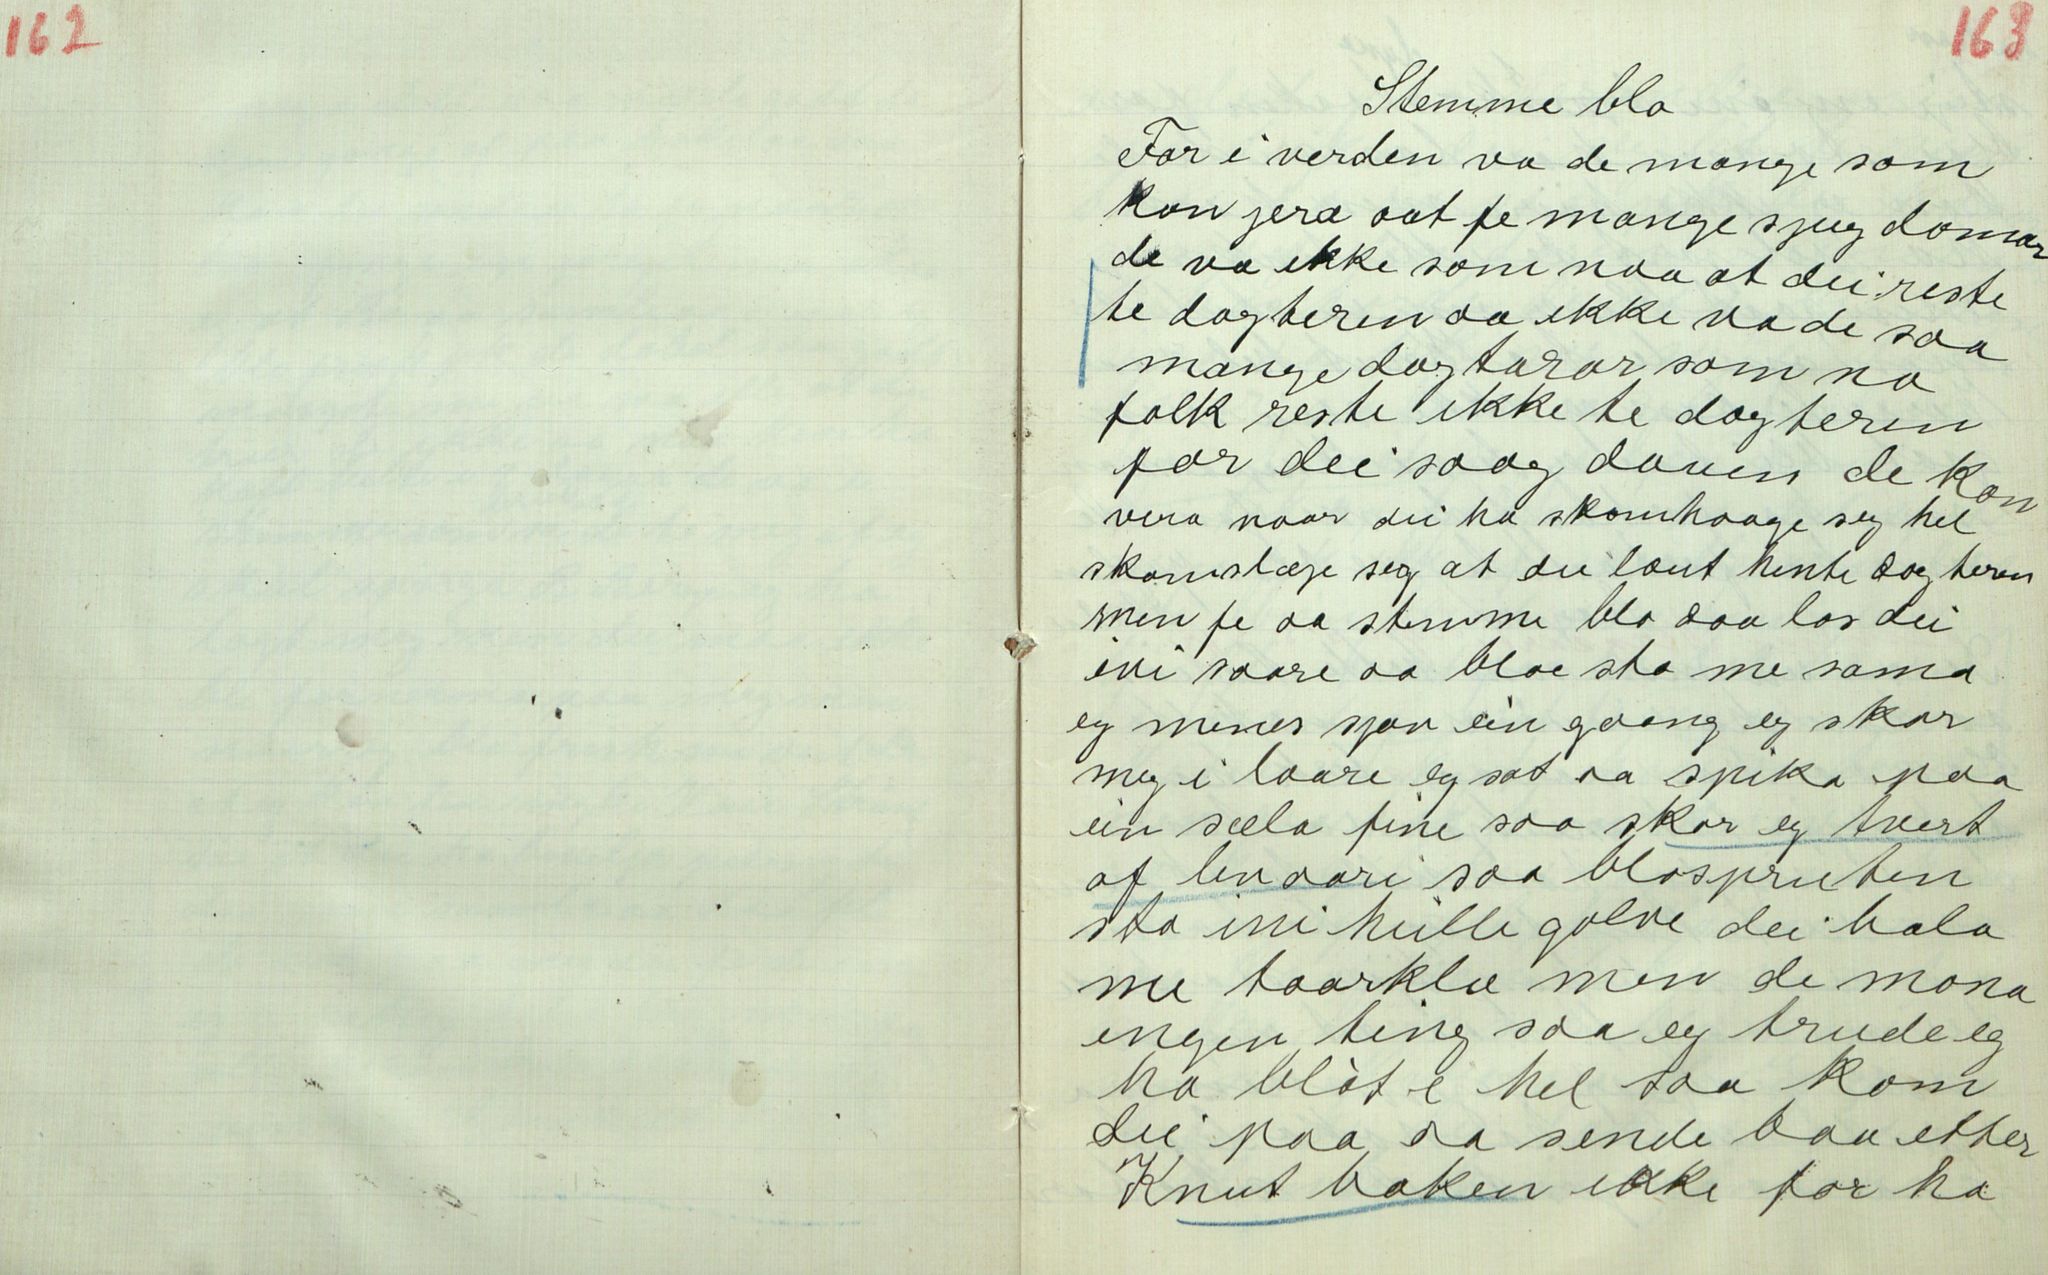 162
163
Stemme blo
For i verden va de mange som
kon jera aat fe mange sjugdomar
de va ikke som naa at dei reste
te dogteren aa ikke va de saa
mange dogtarar som na
folk reste ikke te dogteren
for dei saag dauen de kon
vera naar dei ha skamhaage seg hel
skamslæje seg at dei laut hente dogteren
men fe aa stemme blo daa las dei
ivi saare aa bloe sta me sama
eg menes sjøv ein gaang eg skar
meg i laare eg sat aa spika paa
ein sæla fine saa skar eg tvert
af livaari saa blospruten
sto ini heille golve dei bala
me taarklæ men de mona
engen ting saa eg trude eg
ha blöt i hel saa kom
dei paa aa sende baa etter
Knut baken ikke for ha